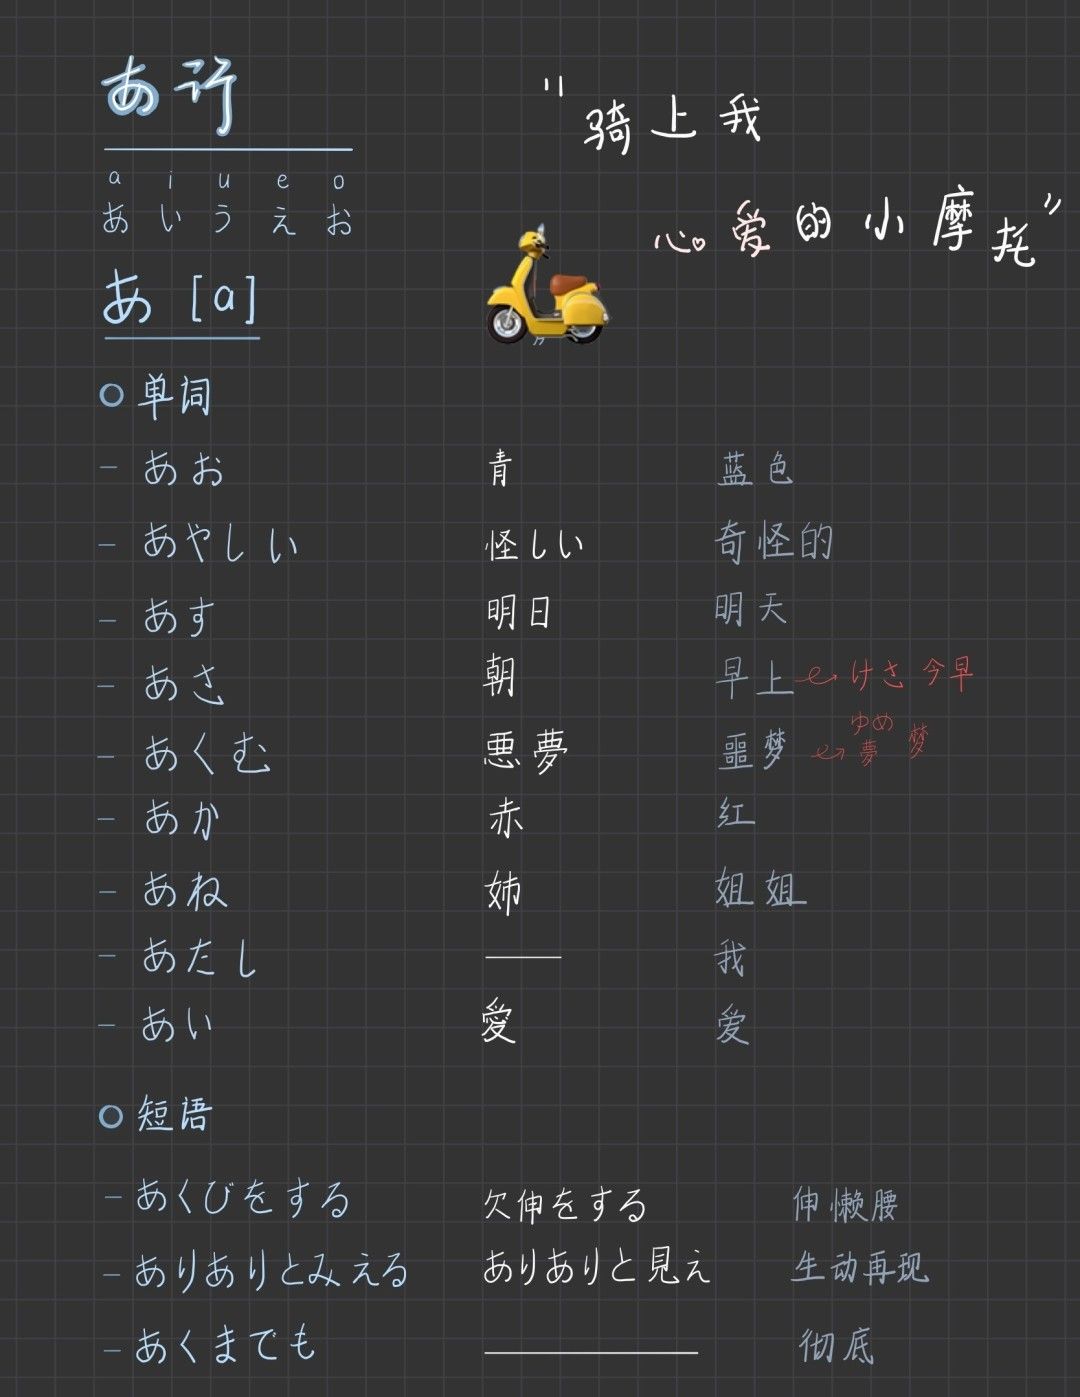 あ行
"骑上我
心爱的小摩托"
a i u e o
あいうえお
あ [a]
单词
- あお 青 蓝色
- あやしい 怪しい 奇怪的
- あす 明日 明天
- あさ 朝 早上 けさ 今早
ゆめ
- あくむ 悪夢 噩梦 夢 梦
- あか 赤 红
- あね 姉 姐姐
- あたし —— 我
- あい 愛 爱
短语
- あくびをする 欠伸をする 伸懒腰
- ありありとみえる ありありと見え 生动再现
- あくまでも —— 彻底